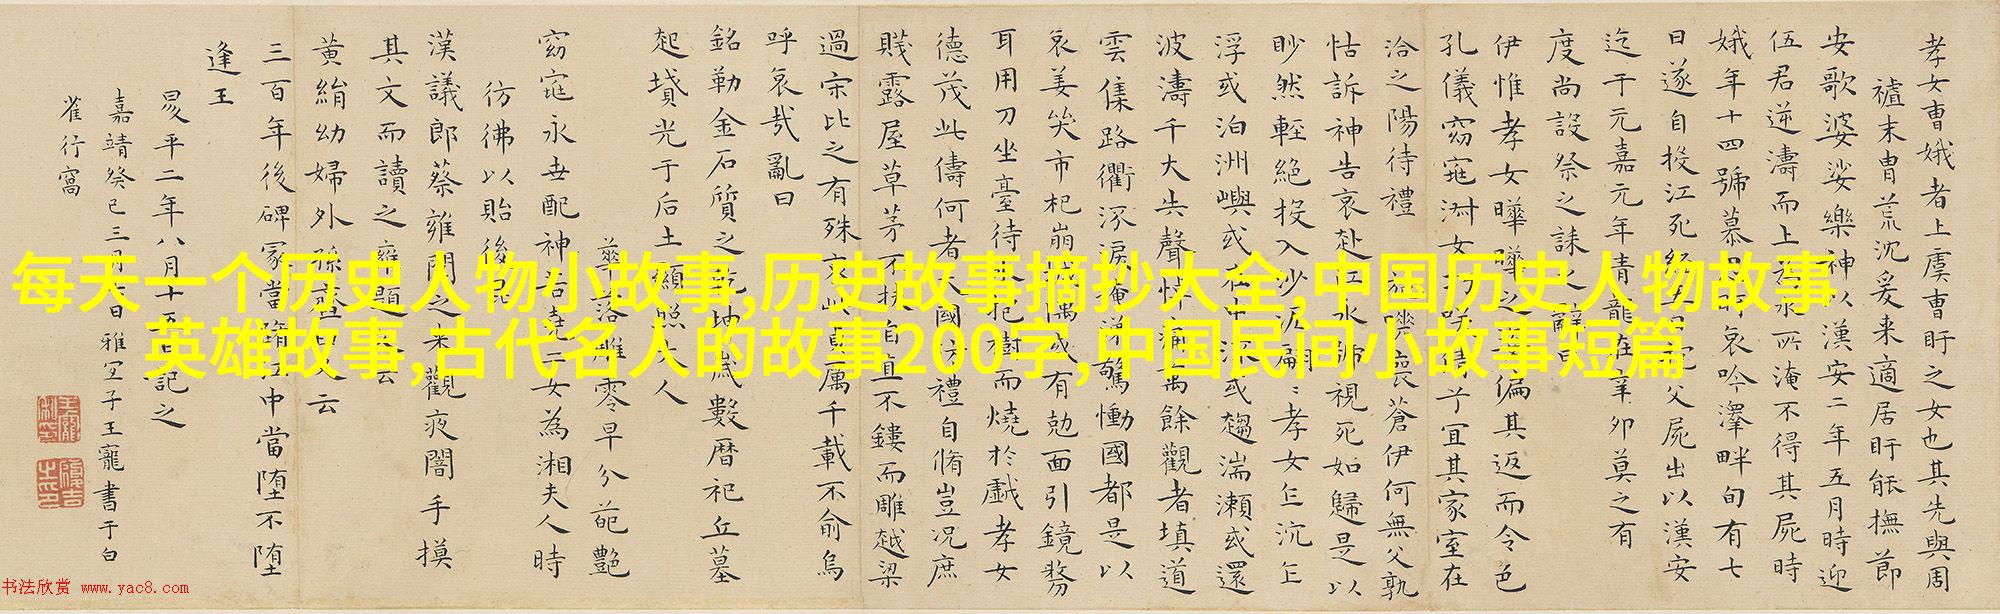 每天一个历史人物小故事,历史故事摘抄大全,中国历史人物故事
英雄故事,古代名人的故事200字,中国民间小故事短篇
孝女曹娥者上虞曹盱之女也其先與周
末胄荒沉爰来適居盱能撫節
安歌婆娑樂神以漢安二年五月時迎
伍君逆濤而上為水所淹不得其屍時
娥年十四號慕思盱哀吟澤畔旬有七
日遂自投江死經五日抱父屍出以漢安
迄于元嘉元年青龍在辛卯莫之有
度尚設祭之誄之辭曰
伊惟孝女曄曄之姿偏其返而令色
孔儀窈窕淑女巧笑倩兮宜其家室在
洽之陽待禮未施嗟喪蒼伊何無父孰
怙訴神告哀赴江永號視死如歸是以
眇然輕絕投入沙泥翩〻孝女乍沉乍
浮或泊洲嶼或在中流或趨湍瀬或還
波濤千大失聲悼痛萬餘觀者填道
雲集路衢淚掩涕驚慟國都是以
哀姜哭市杞崩城隅或有勊面引鏡剺
耳用刀坐臺待水抱樹而燒於戯孝女
德茂此儔何者大國防禮自脩豈況庶
賤露屋草茅不扶自直不鏤而雕越梁
過宋比之有殊哀此貞厲千載不俞烏
呼哀哉亂曰
銘勒金石質之乾坤歲數曆祀丘墓
起墳光于后土顯照夫人
華落雕零早分葩艷
窈窕永世配神若堯二女為湘夫人時
彷彿以貽後昆
漢議郎蔡雍聞之来觀夜闇手摸
其文而讀之雍題文云
黄絹幼婦外孫齏臼又云
三百年後碑冢當墮江中當堕不堕
逢王
昇平二年八月十五日記之
嘉靖癸巳三月六日雅宜子王寵書于白
雀行窩
书法欣赏 www.yac8.com